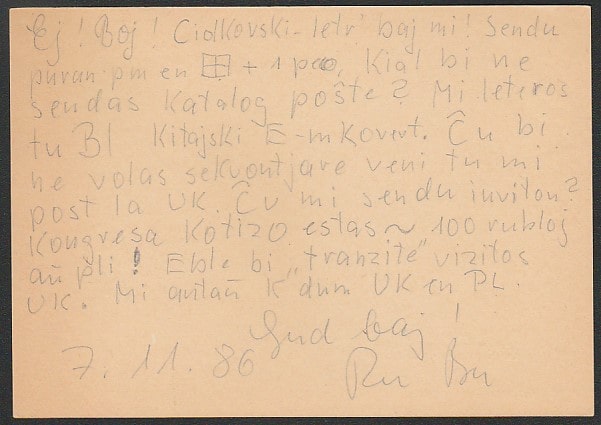 Ej! Boj! Ciolkovski-letr' baj mi! Sendu
puran pm en + 1 pco, Kial bi ne
sendas Katalog pošte? Mi leteros
tu Bl Kitajski E-m Kovert. Ĉu bi
ne volas sekvontjare veni tu mi
post la UK Ĉu mi sendu inviton?
Kongresa Kotizo estas ~ 100 rubloj
aŭ pli! Eble bi „tranzite" vizitos
UK. Mi K dum UK en PL.
Gud baj!
7. 11. 86